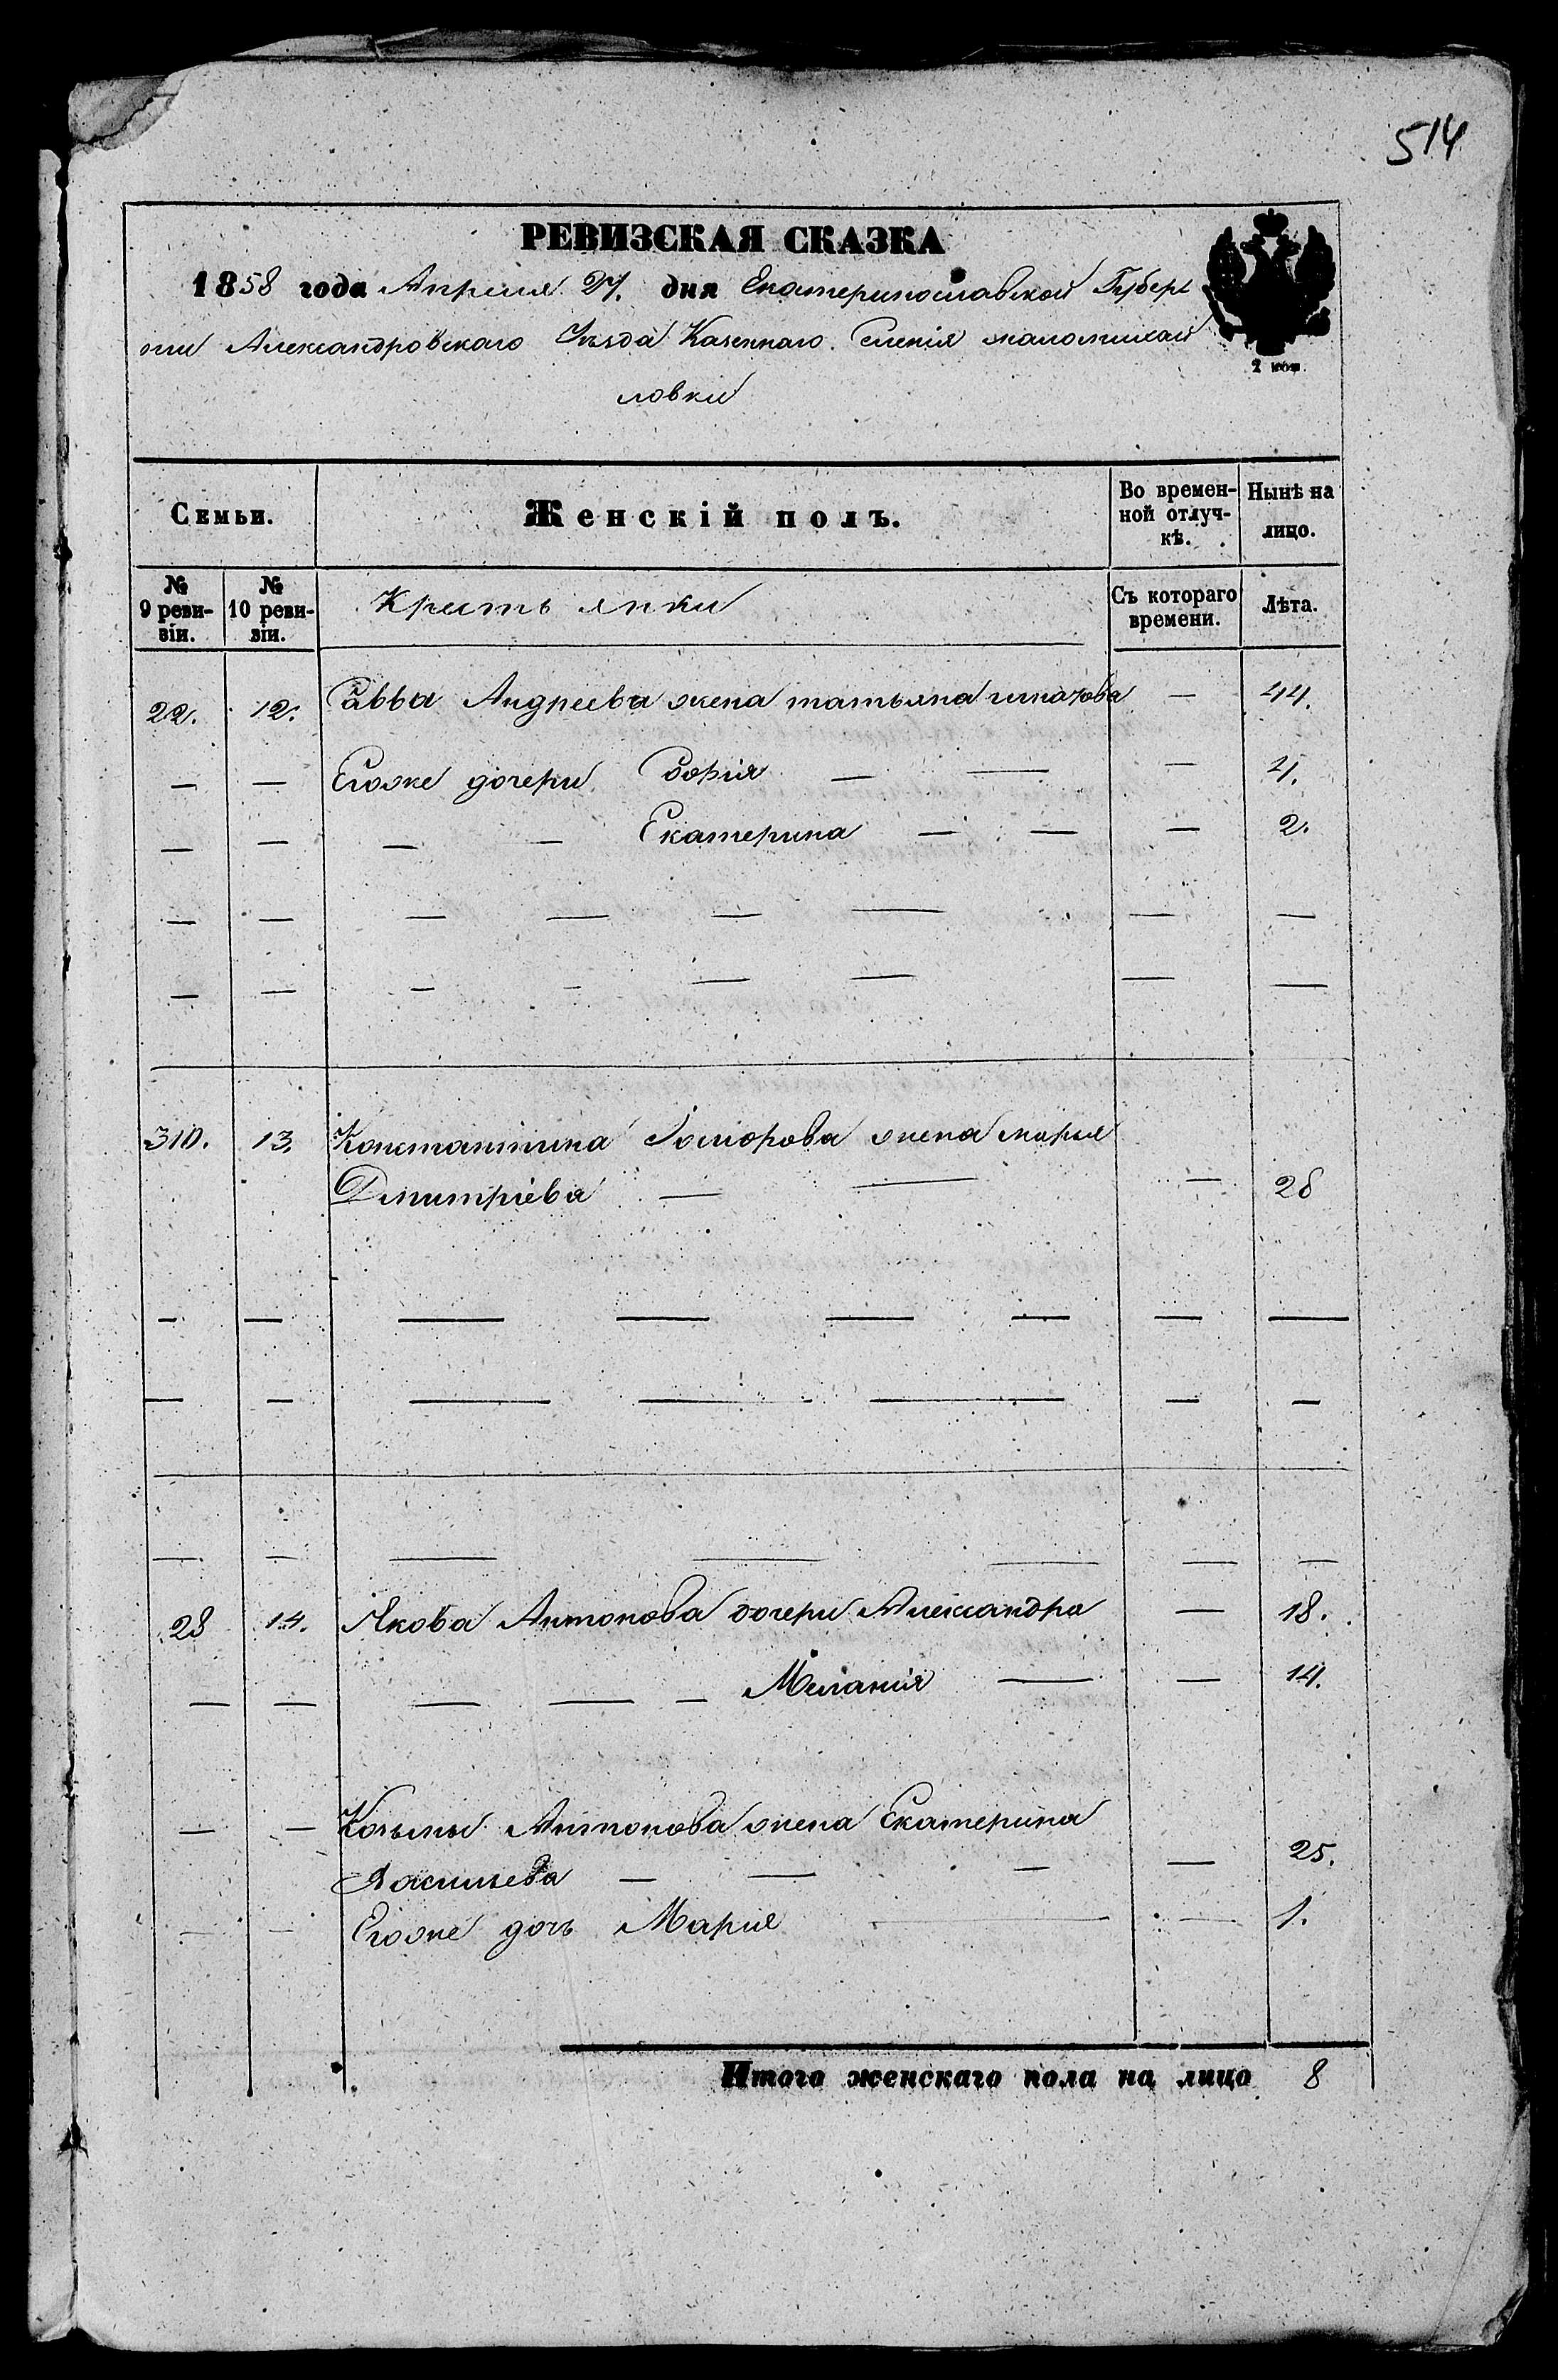 514
РЕВИЗСКАЯ СКАЗКА
1858 года Апреля 27. дня Екатеринославской Губер
нии Александровского Уѣзда Казеннаго Селенія маломихай
ловки
2 коп.
Семьи. Женскій полъ. Во времен- Нынѣ на
ной отлуч- лицо.
кѣ.
№ 9 реви- зіи. № 10 реви- зіи. Крестьянки Съ котораго времени. Лѣта.
22. 12. Савва Андреева жена татьяна — 44.
— — Егоже дочери Софія — — — 4.
— — — — Екатерина — — — 2.
— — — — — — — —
— — — — — — — —
310. 13. Константина жена марья
Дмитріева — — — 28
— — — — — — — —
— — — — — — —
— — — — — — —
23 14. Якова Антонова дочери Александра — 18.
— — — — — Меланія — — 14.
— — Козьмы Антонова жена Екатерина
— — — 25.
— — Егоже дочь Марія — — 1.
Итого женскаго пола на лицо 8